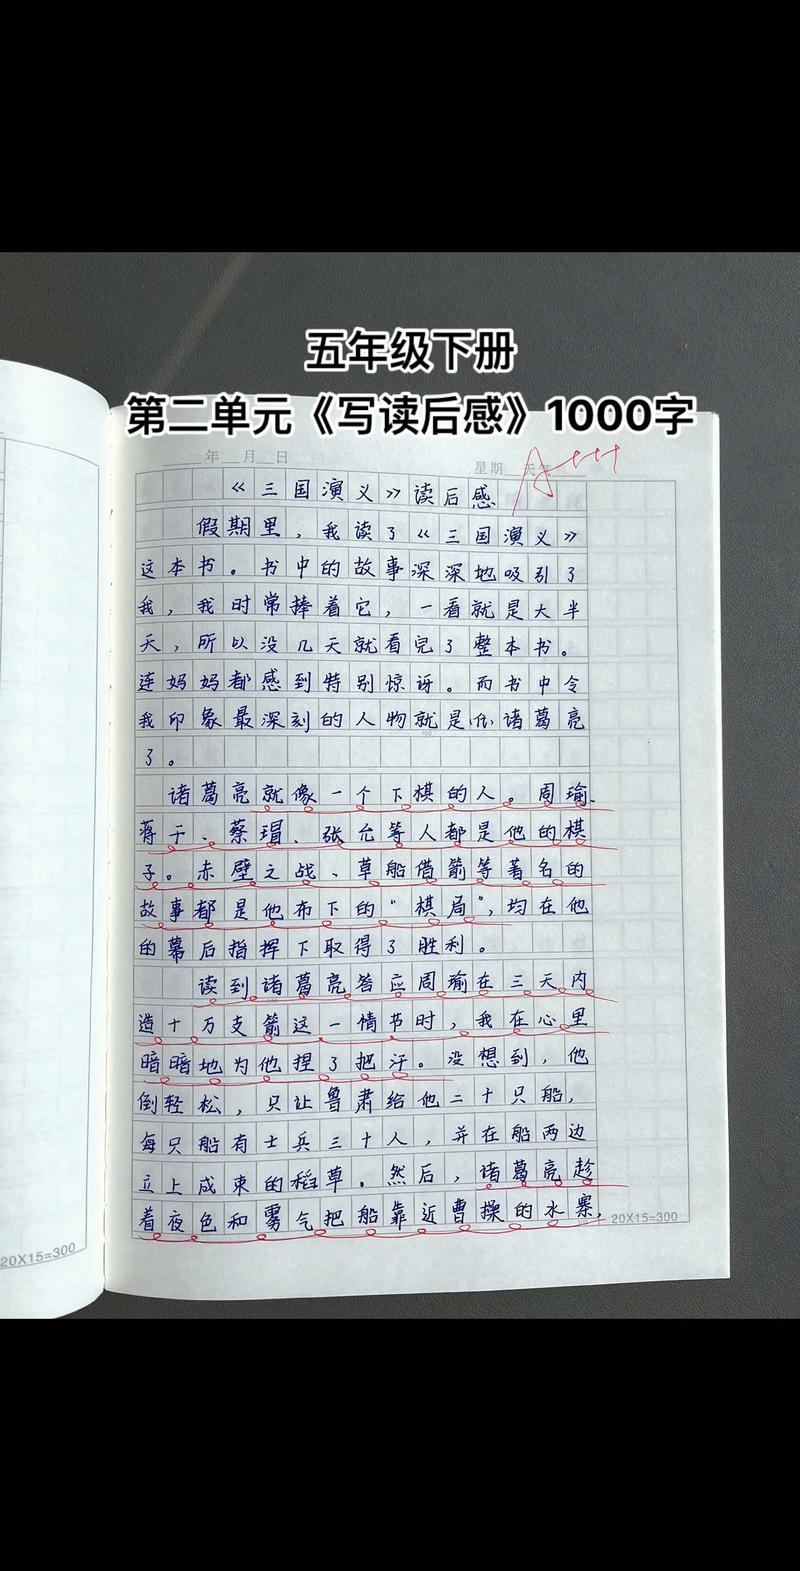 五年级下册
第二单元《写读后感》1000字
年 月 日
星期 天气
A++++
《三国演义》读后感
假期里，我读了《三国演义》
这本书。书中的故事深深地吸引了
我，我时常捧着它，一看就是大半
天，所以没几天就看完了整本书。
连妈妈都感到特别惊讶。而书中令
我印象最深刻的人物就是诸葛亮
了。
诸葛亮就像一个下棋的人。周瑜、
蒋干、蔡瑁、张允等人都是他的棋
子。赤壁之战、草船借箭等著名的
故事都是他布下的“棋局”，均在他
的幕后指挥下取得了胜利。
读到诸葛亮答应周瑜在三天内
造十万支箭这一情节时，我在心里
暗暗地为他捏了把汗。没想到，他
倒轻松，只让鲁肃给他二十只船，
每只船有士兵三十人，并在船两边
立上成束的稻草。然后，诸葛亮趁
着夜色和雾气把船靠近曹操的水寨，
20X15=300
20X15=300